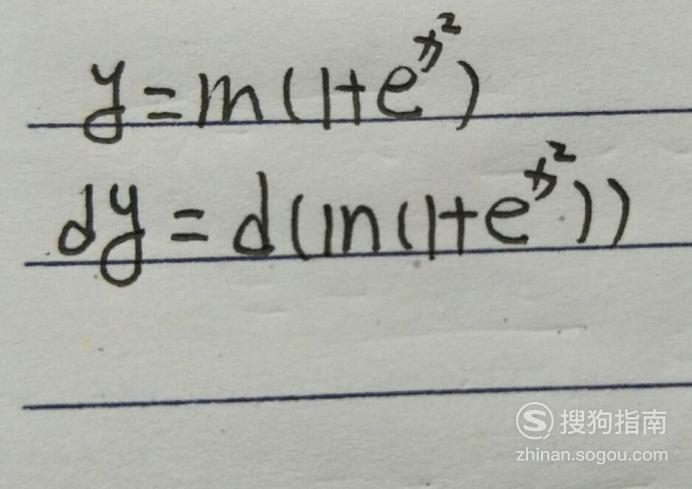 y=ln(1+e^{x^2})
dy=d(ln(1+e^{x^2}))
S 搜狗指南
zhinan.sogou.com